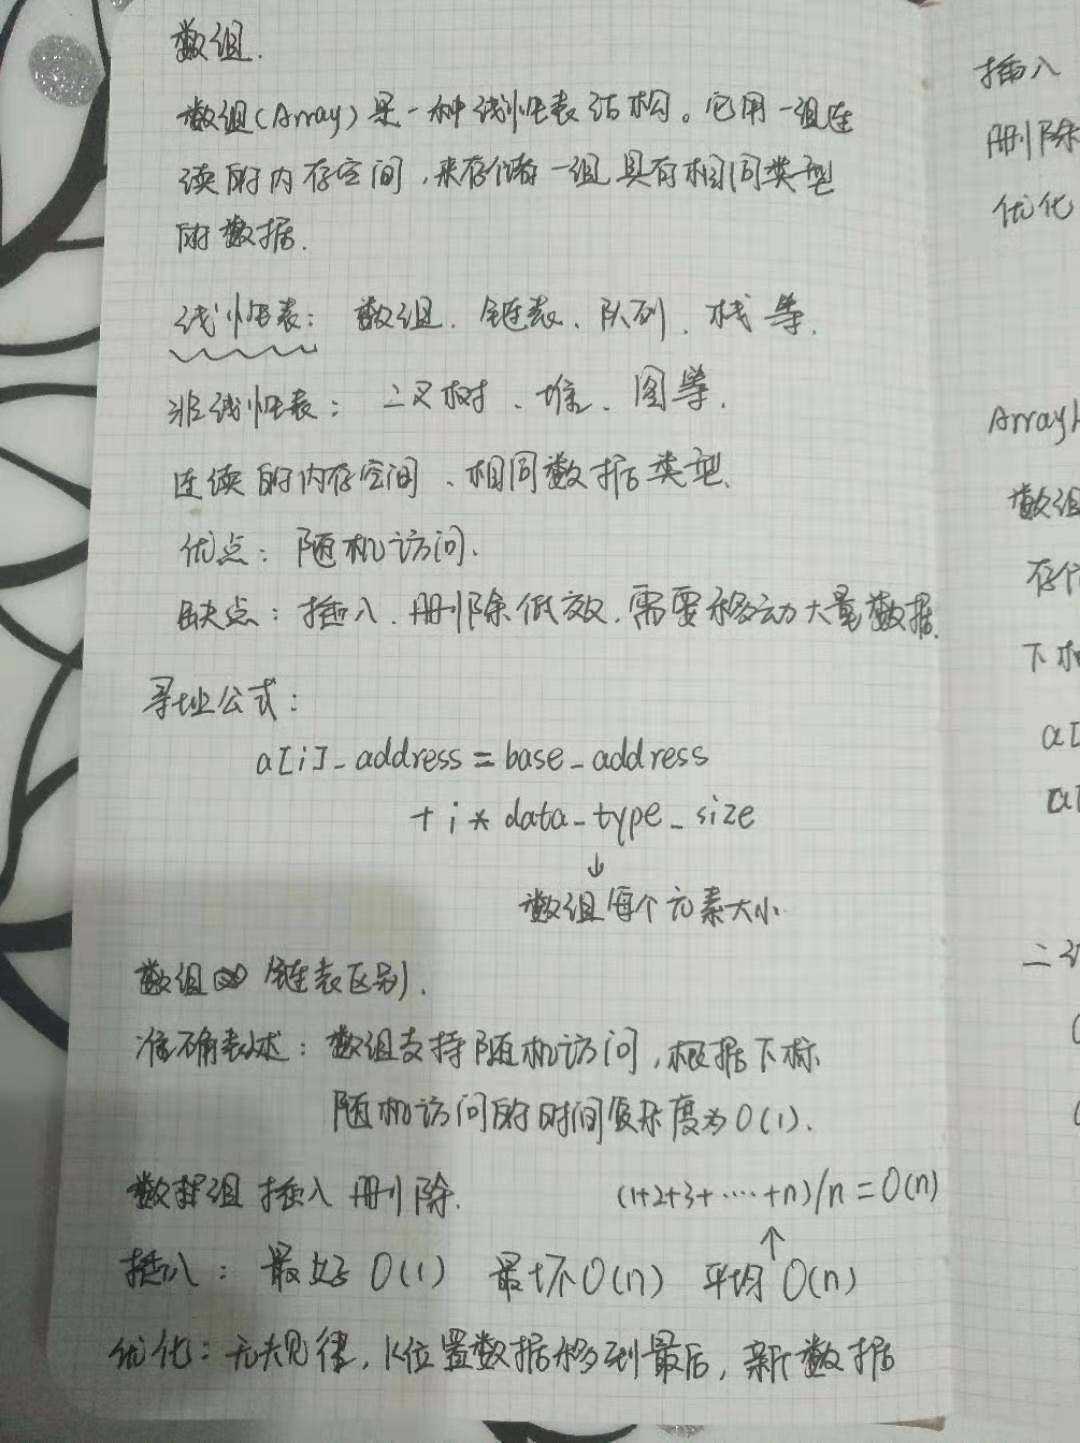 数组.
数组(Array)是一种线性表结构。它用一组连
续的内存空间,来存储一组具有相同类型
的数据.
线性表: 数组、链表、队列、栈等.
非线性表: 二叉树、堆、图等.
连续的内存空间、相同数据类型.
优点: 随机访问.
缺点: 插入、删除低效.需要移动大量数据.
寻址公式:
a[i]_address = base_address
+ i * data_type_size
↓
数组每个元素大小.
数组 链表区别.
准确表述: 数组支持随机访问,根据下标
随机访问的时间复杂度为O(1).
数组 插入 删除.
(1+2+3+……+n)/n = O(n)
↑
插入: 最好 O(1) 最坏 O(n) 平均 O(n)
优化: 无规律, K位置数据移到最后, 新数据
插入
删除
优化
Array
数组
下标
a[
a[
二